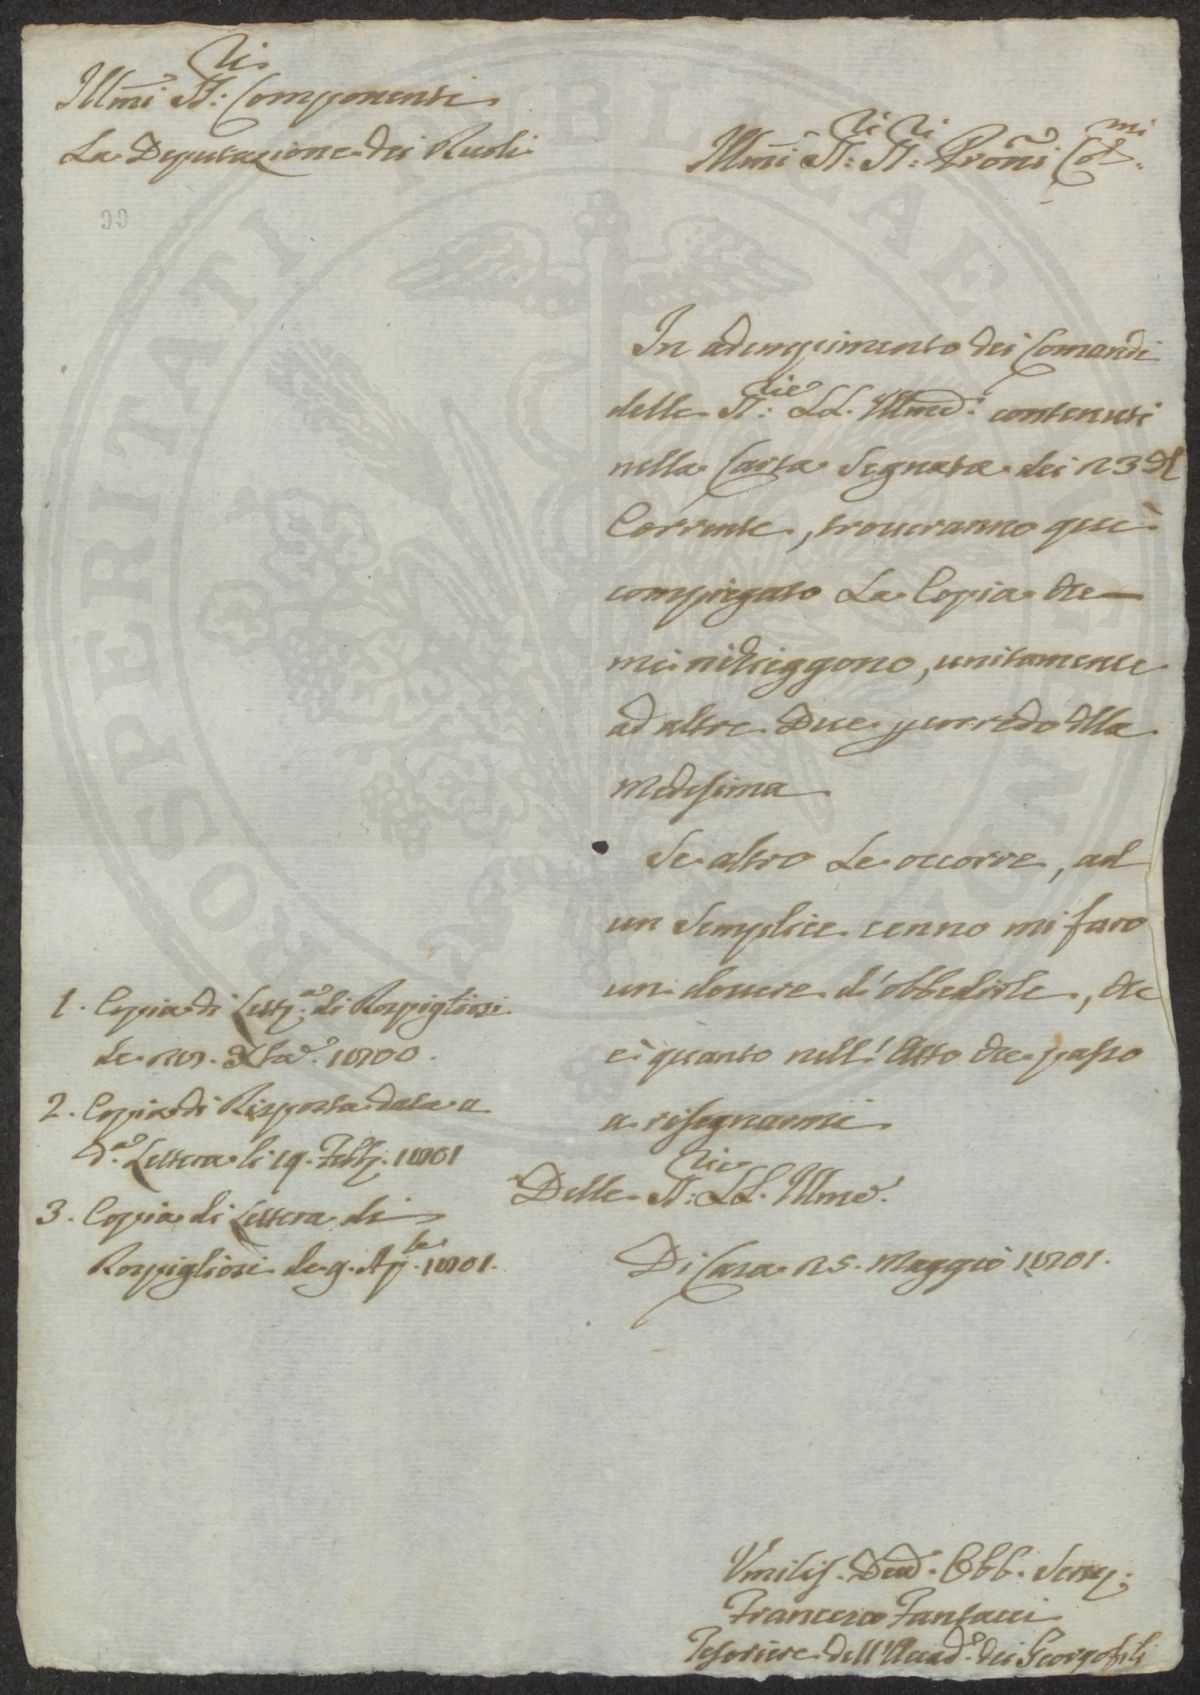 Illmi SS:ri Componenti
La Deputazione dei Ruoli
Illmi SS:ri SS:ri Proni Col:mi
In adempimento dei Comandi
delle SS:rie LL. Illme: contenuti
nella Carta Segnata dei 23 del
Corrente, troveranno qui
compiegato La Copia che
mi richieggono, unitamente
ad altre Due p corredo della
medesima
Se altro Le occorre, ad
un Semplice cenno mi farò
un dovere d'obbedirle, che
è quanto nell'Atto che passo
a risegnarmi
Delle SS:rie LL. Illme.
Di Casa 25. Maggio 1801.
1. Copia di Lettra di Rospigliosi
de 1800.
2. Copia di Risposta data a
da Lettera li 19. Febb. 1801
3. Copia di Lettera di
Rospigliosi de 9. Aple 1801.
Umilis. Devo. Obb. Serv:
Francesco Fantacci
Tesoriere dell'Accada. dei Georgofili
PROSPERITATI PUBLICAE AUGENDAE